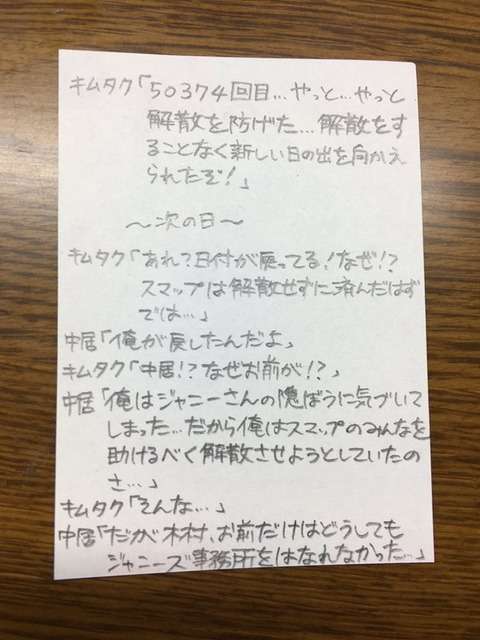 キムタク「50374回目…やっと…やっと
解散を防げた…解散をす
ることなく新しい日の出を向かえ
られたぞ!」
～次の日～
キムタク「あれ?日付が戻ってる!なぜ!?
スマップは解散せずに済んだはず
では…」
中居「俺が戻したんだよ」
キムタク「中居!?なぜお前が!?」
中居「俺はジャニーさんの陰ぼうに気づいて
しまった…だから俺はスマップのみんなを
助けるべく解散させようとしていたの
さ…」
キムタク「そんな…」
中居「だが木村、お前だけはどうしても
ジャニーズ事務所をはなれなかった…」